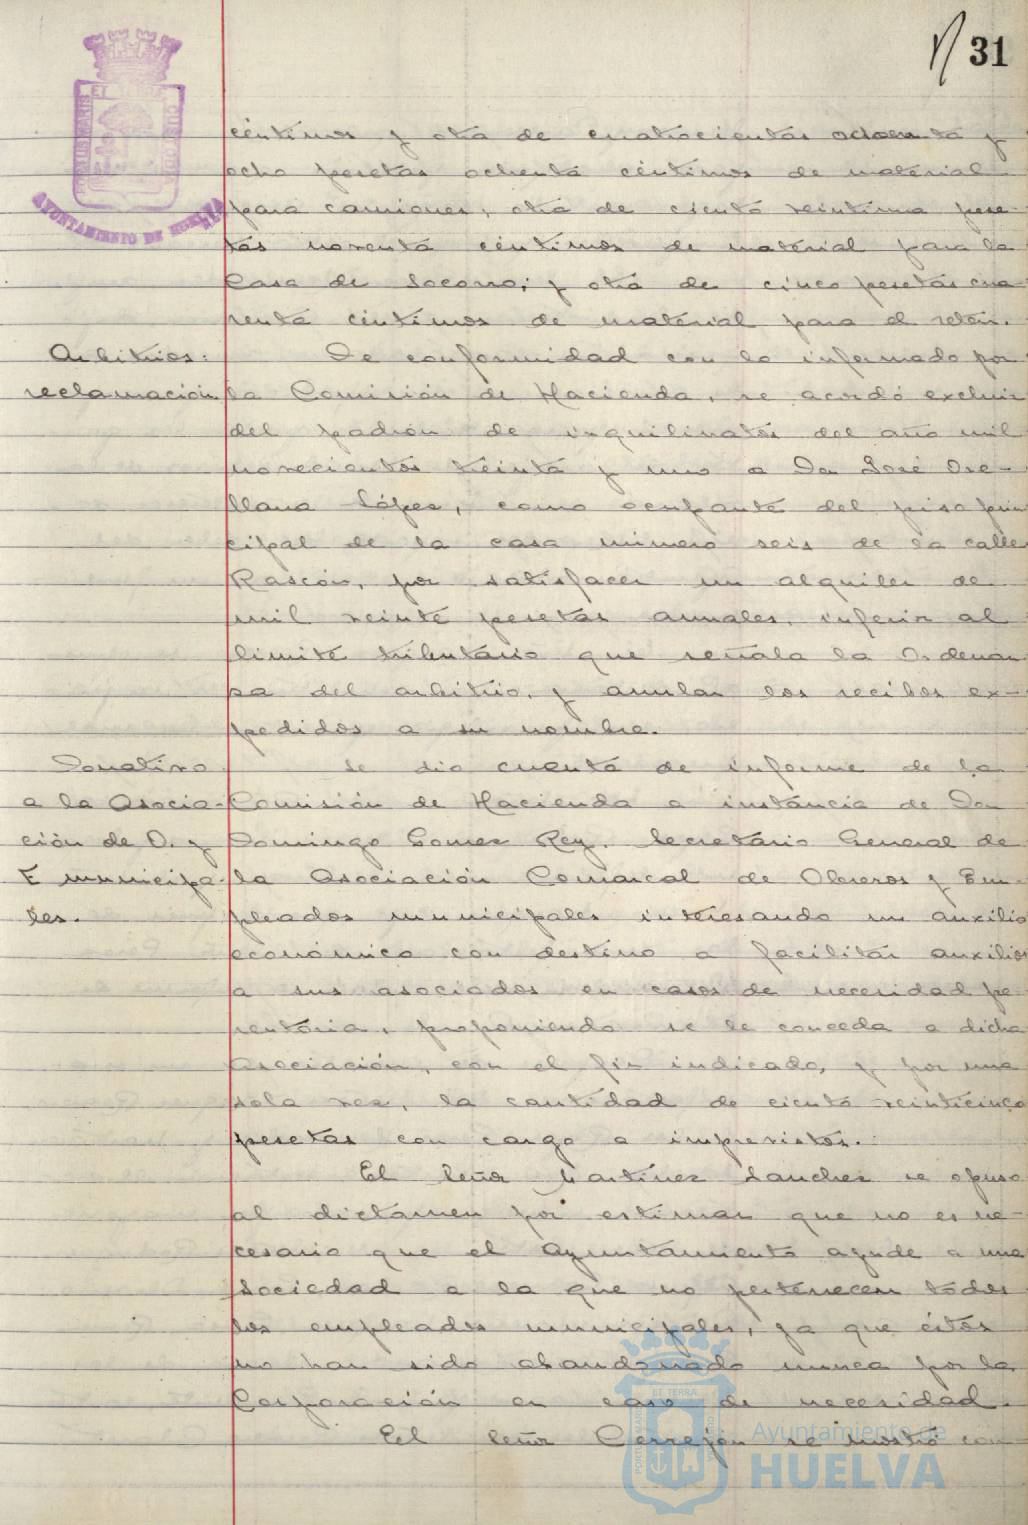 31
AYUNTAMIENTO DE HUELVA
céntimos y otra de cuatrocientas ochenta y
ocho pesetas ochenta céntimos de material
para camiones; otra de ciento veintiuna pese-
tas noventa céntimos de material para la
Casa de Socorro; y otra de cinco pesetas cua
renta céntimos de material para el retén.
Arbitrios: De conformidad con lo informado por
reclamación la Comisión de Hacienda, se acordó excluir
del padrón de inquilinatos del año mil
novecientos treinta y uno a Don José Ore-
llana López, como ocupante del piso prin
cipal de la casa número seis de la calle
Rascón, por satisfacer un alquiler de
mil veinte pesetas anuales, inferior al
límite tributario que señala la Ordenan
za del arbitrio, y anular los recibos ex-
pedidos a su nombre.
Donativo Se dio cuenta de informe de la
a la Asocia- Comisión de Hacienda a instancia de Don
ción de O. y Domingo Gomez Rey, Secretario General de
E municipa- la Asociación Comarcal de Obreros y Em-
les. pleados municipales interesando un auxilio
económico con destino a facilitar auxilios
a sus asociados en casos de necesidad pe
rentoria, proponiendo se le conceda a dicha
Asociación, con el fin indicado, y por una
sola vez, la cantidad de ciento veinticinco
pesetas con cargo a imprevistos.
El Señor Martínez Sanchez se opuso
al dictamen por estimar que no es ne-
cesario que el Ayuntamiento ayude a una
Sociedad a la que no pertenecen todos
los empleados municipales, ya que éstos
no han sido abandonado nunca por la
Corporación en caso de necesidad.
El Señor Cerrejón se mostró con-
Ayuntamiento de
HUELVA